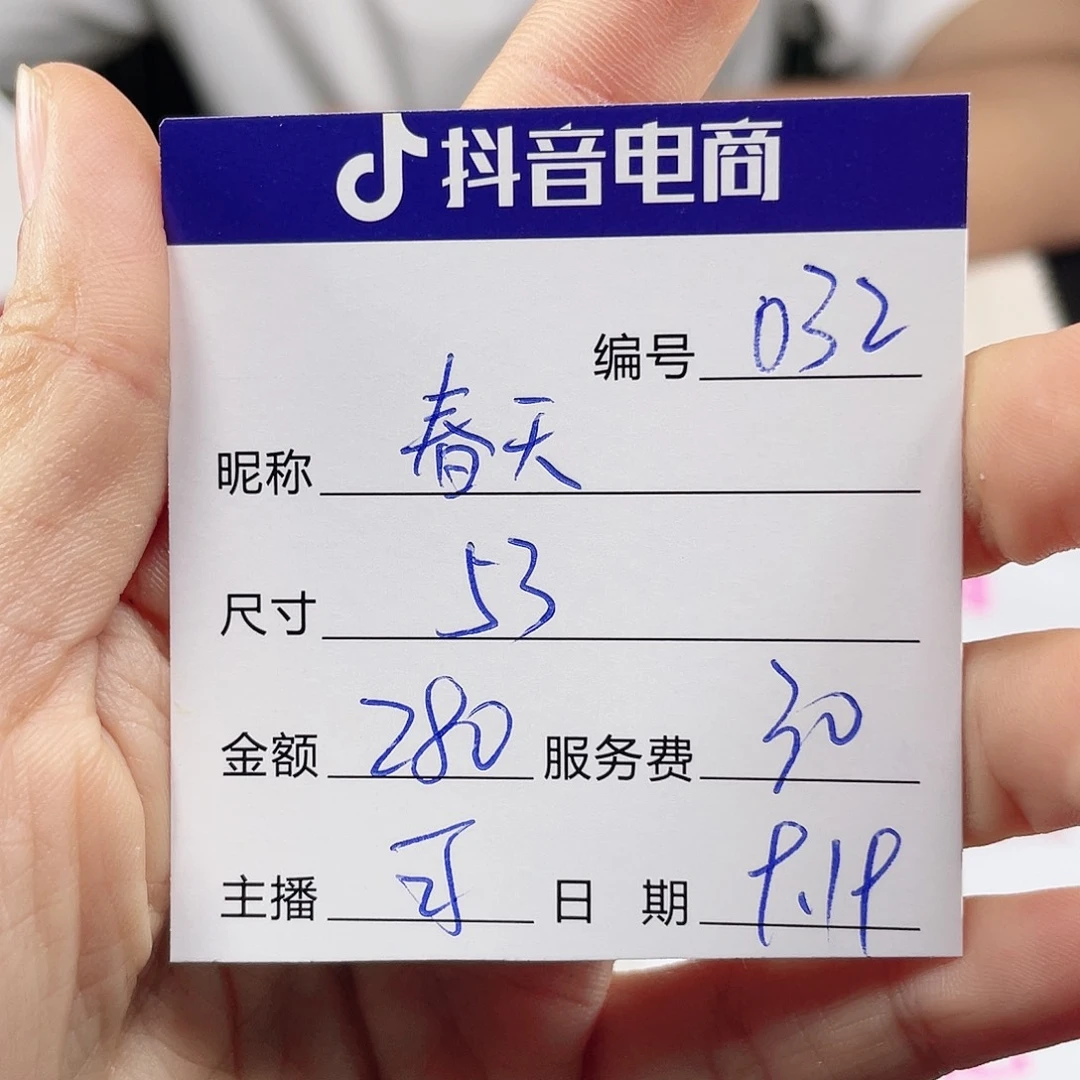 抖音电商
编号 032
昵称 春天
尺寸 53
金额 280 服务费 30
主播 日期 9.19